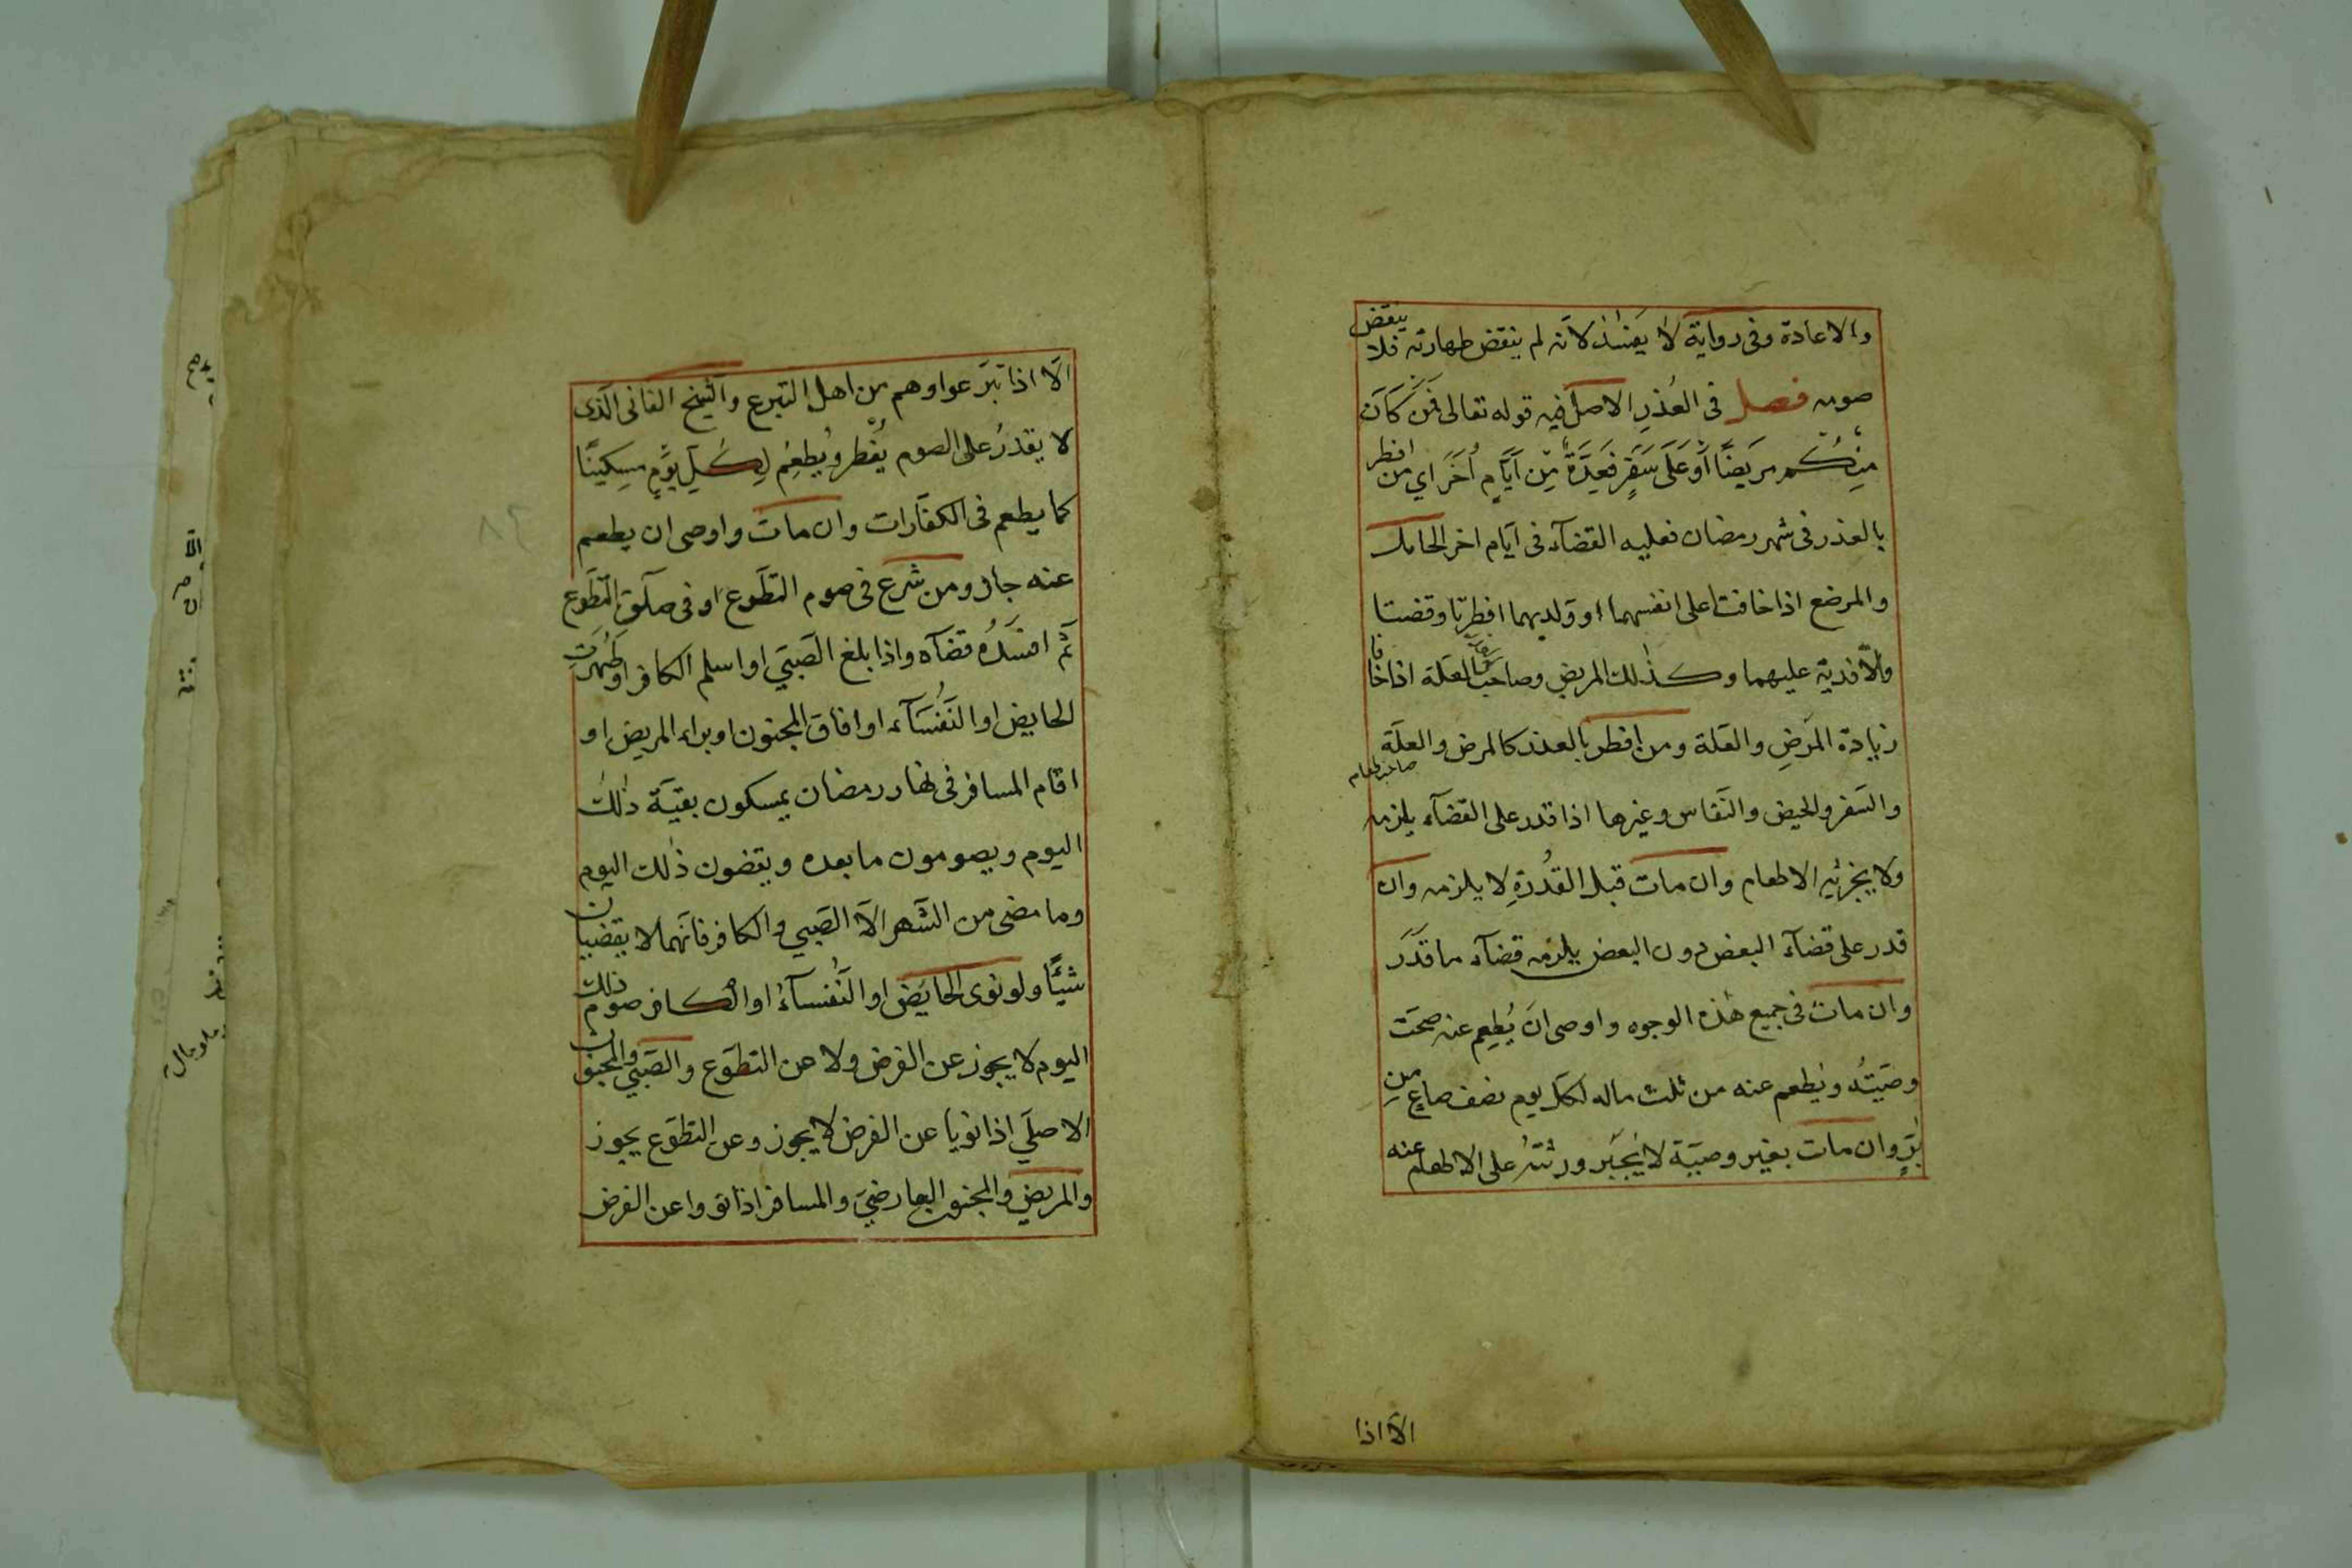 والاعادة وفى رواية لا يفسد لانّه لم ينقض طهارته فلا ينقض
صومه فصل فى العُذرِ الاصل فيه قوله تعالى فَمَنْ كَانَ
مِنْكُم مَرِيضًا أَوْ عَلَى سَفَرٍ فَعِدَّةٌ مِّنْ اَيَّامٍ أُخَرَ اي من افطر
بالعذر فى شهر رمضان فعليه القضآء فى ايّام اخر الحامل
والمرضع اذا خافتا على انفسهما او ولديهما افطرتا وقضتا
ولا فدية عليهما وكذلك المريض وصاحب العلة اذا خافا
زيادة المَرضِ والعَلة ومن افطر بالعذر كالمرض والعلَة
والسَفر والحيض والنَفاس وغيرها اذا قدر على القضآء يلزمه
ولا يجزئيه الاطعام وان مات قبل القُدرةِ لا يلزمه وان
قدر على قضآء البعض دون البعض يلزمه قضآء ما قَدَرَ
وان مات فى جميع هٰذه الوجوه واوصى انَ يُطعِم عنه صحَت
وصَيتُه ويُطعم عنه من ثلث ماله لكلّ يوم نصف صاعٍ مِن
بُرٍّ وان مات بغير وصيّة لا يُجبَر ورثتُه على الاطعام عنه
الاّ اذا
الاّ اذا تبرَّعوا وهم من اهل التبرع والشيخ الفانى الّذى
لا يقدرُ على الصوم يُفطر ويُطعِمُ لِكُلِّ يَوْمٍ مِسكِينًا
كما يطعم فى الكفّارات وان مات واوصى ان يطعم
عنه جاز ومن شرع فى صوم التطَوع او فى صلٰوة التَطَوع
ثمّ افسَدُه قضَآه واذا بلغ الصَبيّ او اسلم الكافر او طَهُرَت
الحايض او النَفُسَآء او افاق المجنون او براء المريض او
اقام المسافر فى نهار رمضان يمسكون بقيّة ذٰلك
اليوم ويصومون ما بعده ويقضون ذٰلك اليوم
وما مضى من الشَهر الاّ الصَبي والكافر فانّهما لا يقضيان
شئيًا ولو نوى الحايض او النُفسآءُ او الكافر صوم ذلك
اليوم لا يجوز عن الفرض ولا عن التطوَع والصَبيّ والمجنون
الاصلَي اذا نويا عن الفرض لا يجوز وعن التطوَع يجوز
والمريض والمجنون العارضيّ والمسافر اذا نووا عن الفرض